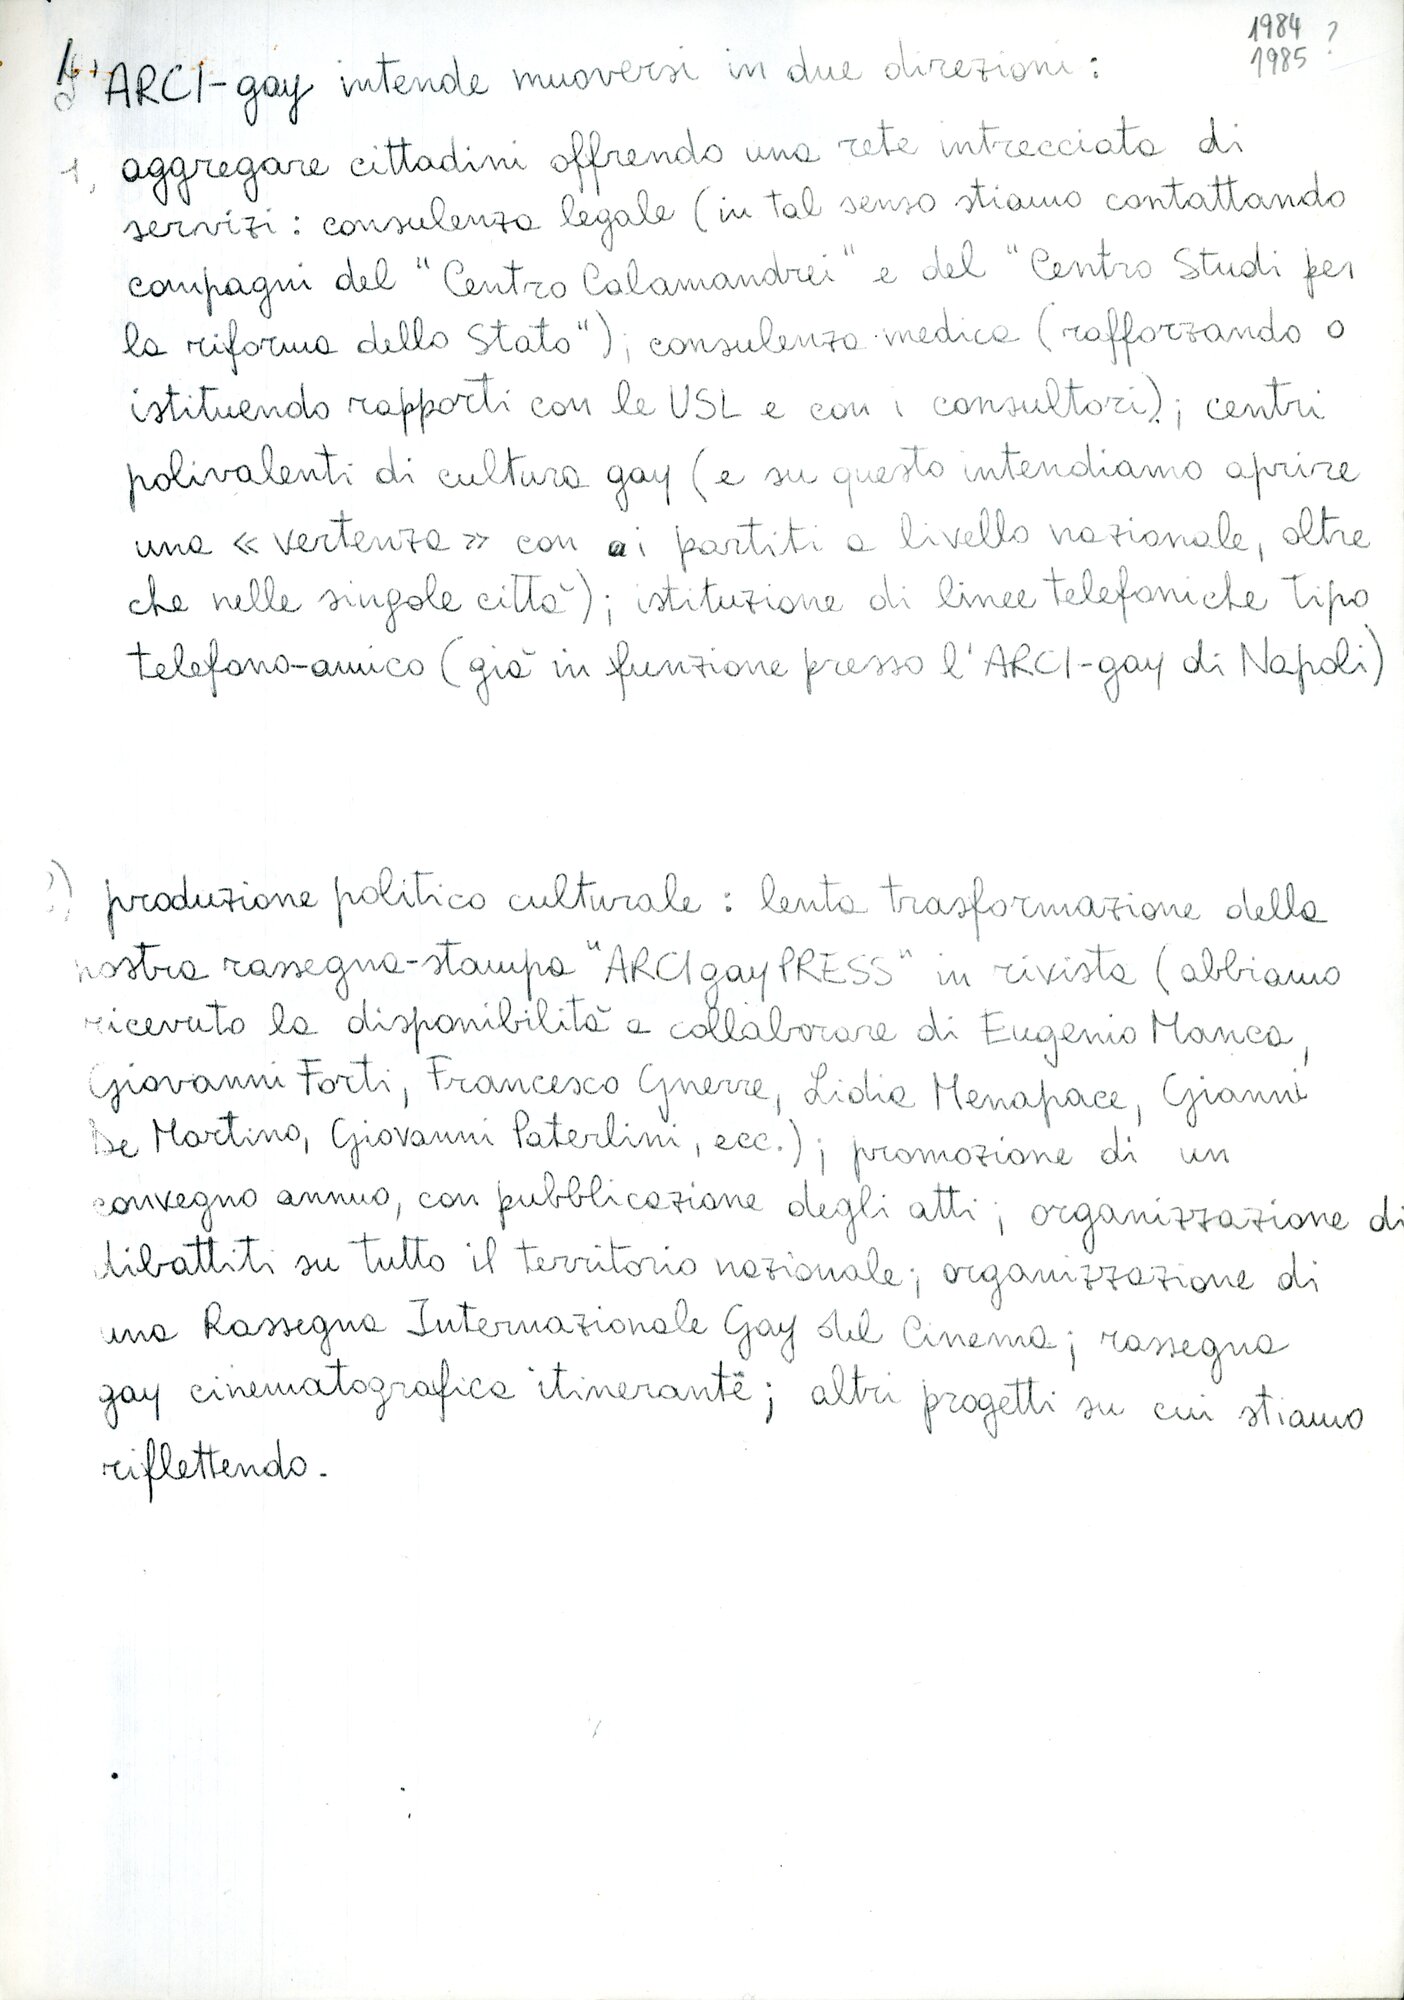 1984 ?
1985
L'ARCI-gay intende muoversi in due direzioni:
1) aggregare cittadini offrendo una rete intrecciata di
servizi: consulenza legale (in tal senso stiamo contattando
compagni del "Centro Calamandrei" e del "Centro Studi per
la riforma dello Stato"); consulenza medica (rafforzando o
istituendo rapporti con le USL e con i consultori); centri
polivalenti di cultura gay (e su questo intendiamo aprire
una «vertenza» con i partiti a livello nazionale, oltre
che nelle singole città); istituzione di linee telefoniche tipo
telefono-amico (già in funzione presso l'ARCI-gay di Napoli)
2) produzione politico culturale: lenta trasformazione della
nostra rassegna-stampa "ARCIgayPRESS" in rivista (abbiamo
ricevuto la disponibilità a collaborare di Eugenio Manca,
Giovanni Forti, Francesco Gnerre, Lidia Menapace, Gianni
De Martino, Giovanni Paterlini, ecc.); promozione di un
convegno annuo, con pubblicazione degli atti; organizzazione di
dibattiti su tutto il territorio nazionale; organizzazione di
una Rassegna Internazionale Gay del Cinema; rassegna
gay cinematografica itinerante; altri progetti su cui stiamo
riflettendo.